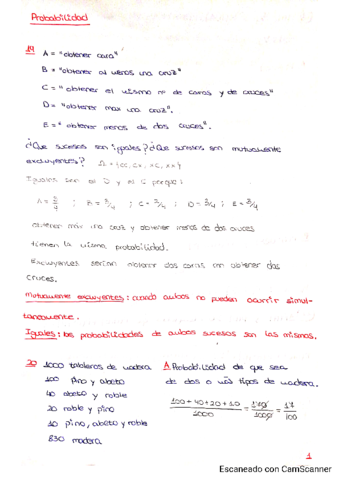 Probabilidad
1º A = "obtener cara"
B = "obtener al menos una cruz"
C = "obtener el mismo nº de caras y de cruces"
D = "obtener max una cruz".
E = "obtener menos de dos cruces".
¿Que sucesos son iguales? ¿Que sucesos son mutuamente
excluyentes? Ω = {cc, cx, xc, xx}
Iguales son el D y el E porque:
A = 3/4 ; B = 3/4 ; C = 2/4 ; D = 3/4 ; E = 3/4
obtener máx una cruz y obtener menos de dos cruces
tienen la misma probabilidad.
Excluyentes serían obtener dos caras con obtener dos
cruces.
Mutuamente excluyentes: cuando ambos no pueden ocurrir simul-
taneamente.
Iguales: las probabilidades de ambos sucesos son las mismas.
2º 1000 tableros de madera
100 pino y abeto
40 abeto y roble
20 roble y pino
10 pino, abeto y roble
830 madera
A Probabilidad de que sea
de dos o más tipos de madera.
100 + 40 + 20 + 10 / 1000 = 170 / 1000 = 17 / 100
1
Escaneado con CamScanner